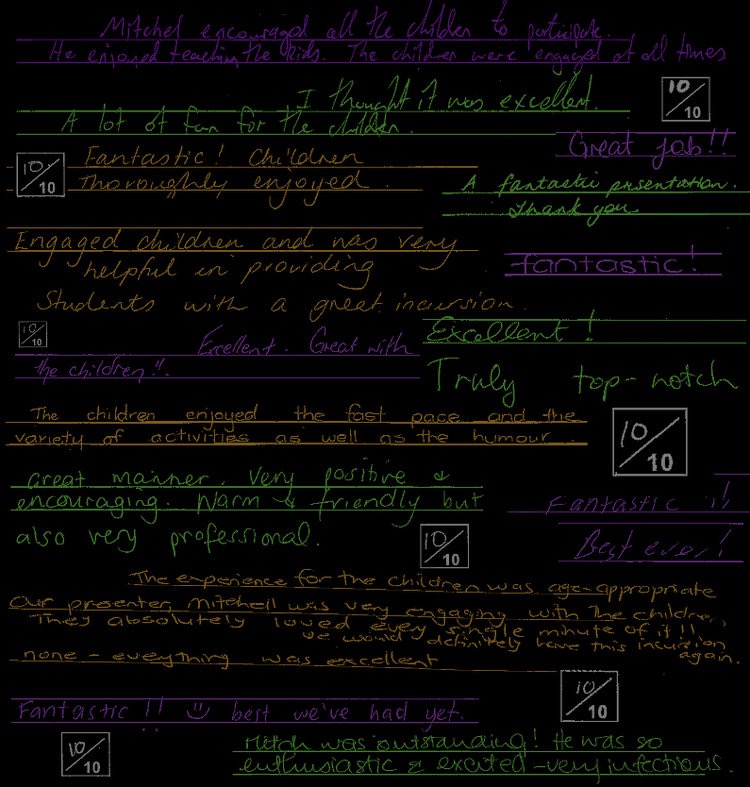 Mitchel encouraged all the children to participate.
He enjoyed teaching the kids. The children were engaged at all times
I thought it was excellent.
10/10
A lot of fun for the children.
Great job!!
10/10
Fantastic! Children
thoroughly enjoyed.
A fantastic presentation.
Thank you
Engaged children and was very
helpful in providing
Students with a great incursion.
fantastic!
10/10
Excellent. Great with
the children!!
Excellent!
Truly top-notch
The children enjoyed the fast pace and the
variety of activities as well as the humour.
10/10
Great manner. Very positive &
encouraging. Warm & friendly but
also very professional.
10/10
Fantastic!!
Best ever!
The experience for the children was age-appropriate
Our presenter, Mitchell was very engaging with the children,
They absolutely loved every single minute of it!!
We would definitely have this incursion
again.
none - eveything was excellent
10/10
Fantastic!! best we've had yet.
10/10
Mitch was outstanding! He was so
enthusiastic & excited - very infectious.